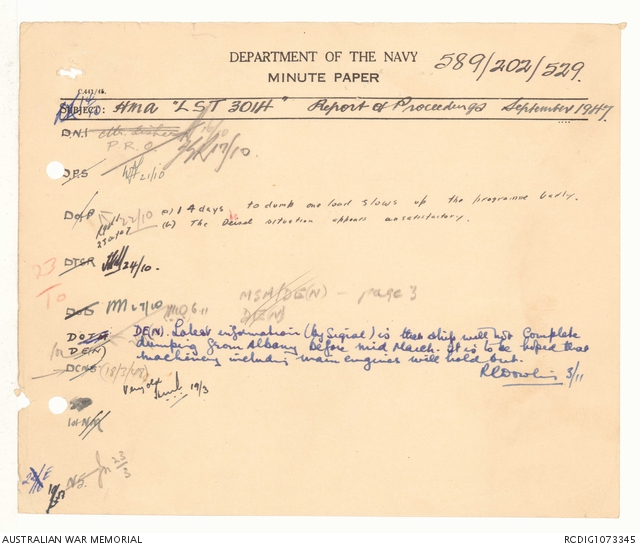 DEPARTMENT OF THE NAVY
MINUTE PAPER
589/202/529.
C.441/46.
SUBJECT: HMA "LST 3014" Report of Proceedings September 1947.
D.N.I
P.R.O. 17/10
DPS 21/10
DofP 22/10 (a) 14 days to dump one load slows up the programme badly.
(b) The Diesel situation appears unsatisfactory.
23
To
DTSR 24/10.
MSM/DE(N) - page 3
DE(N)
DofD 27/10 6.11
DOTA DE(N). Latest information (by Signal) is that ship will not complete
DE(N) dumping from Albany before mid March. It is to be hoped that
machinery including main engines will hold out.
DCNS (18/3/48)
3/11
Very old 19/3
1st NM
NS. 23/3
AUSTRALIAN WAR MEMORIAL
RCDIG1073345